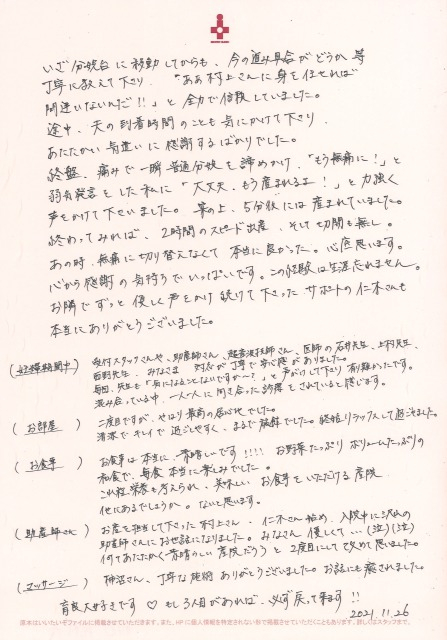 いざ分娩台に移動してからも、今の進み具合がどうか等
丁寧に教えて下り、「ああ村上さんに身を任せれば
間違いないんだ!!」と全力で信頼していました。
途中、夫の到着時間のことも気にかけて下り、
あたたかい気遣いに感謝するばかりでした。
終盤、痛みで一瞬普通分娩を諦めかけ、「もう無痛に!」と
弱有発言をした私に「大丈夫、もう産まれるよ!」と力強く
声をかけて下さいました。案の上、5分後には産まれていました。
終わってみれば、2時間のスピード出産、そして切開も無し。
あの時、無痛に切り替えなくて本当に良かった。心底思います。
心から感謝の気持ちでいっぱいです。この経験は生涯忘れません。
お隣でずっと優しく声をかけ続けて下さったサポートの仁木さんも
本当にありがとうございました。
(妊娠期間中) 受付スタッフさんや、助産師さん、超音波技師さん、医師の石井先生、上村先生、
田野先生、みなさま 対応が丁寧で安心感がありました。
毎回、先生も「気になることないですか〜?」と声がけして下り有り難かったです。
混み合っている中、一人一人に向き合った診療をされていると感じます。
(お部屋) 二度目ですが、やはり最高の居心地でした。
清潔でキレイで過ごしやすく、まるで旅館でした。終始リラックスして過ごせました。
(お食事) お食事は本当に、素晴しいです!!!! お野菜たっぷりボリュームたっぷりの
和食で、毎食本当に楽しみでした。
これ程栄養も考えられ、美味しいお食事をいただける産院
他にあるでしょうか。ないと思います。
(助産師さん) お産を担当して下さった村上さん、仁木さん始め、入院中に沢山の
助産師さんにお世話になりました。みなさん優しくて…(泣)(泣)
何てあたたかく素晴らしい産院だろうと2度目にして改めて思いました。
(マッサージ) 神沼さん、丁寧な施術ありがとうございました。お話にも癒されました。
育良大好きです♡もし3人目があれば、必ず戻って来ます!!
2021.11.26